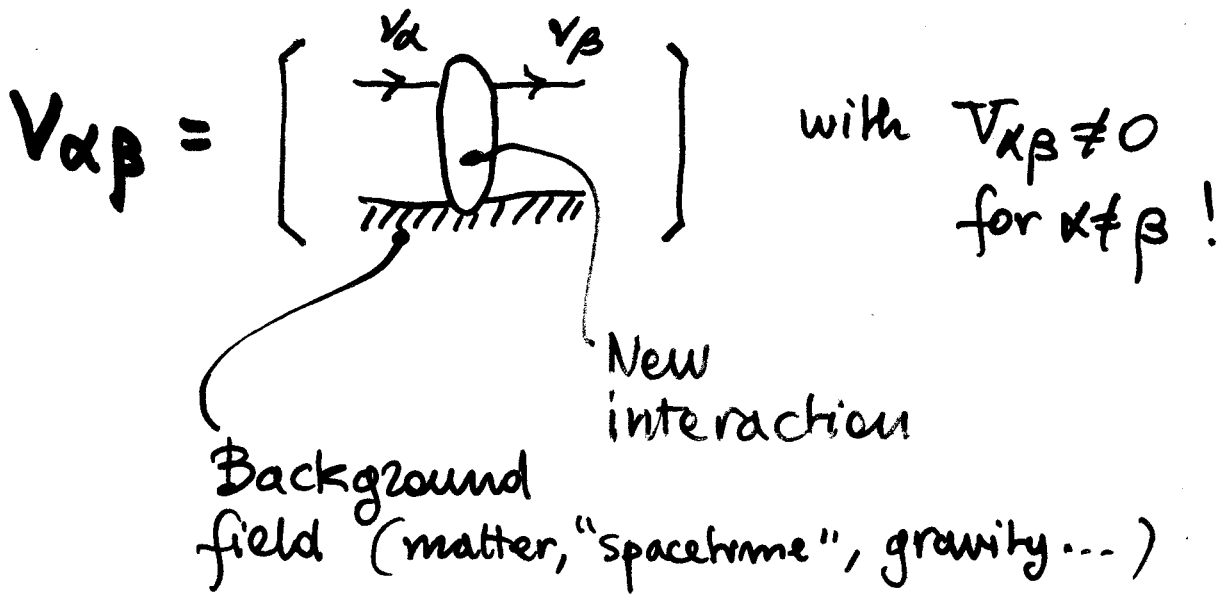 να νβ
Vαβ = [ ] with Vαβ ≠ 0
for α ≠ β !
New
interaction
Background
field (matter, "spacetime", gravity...)